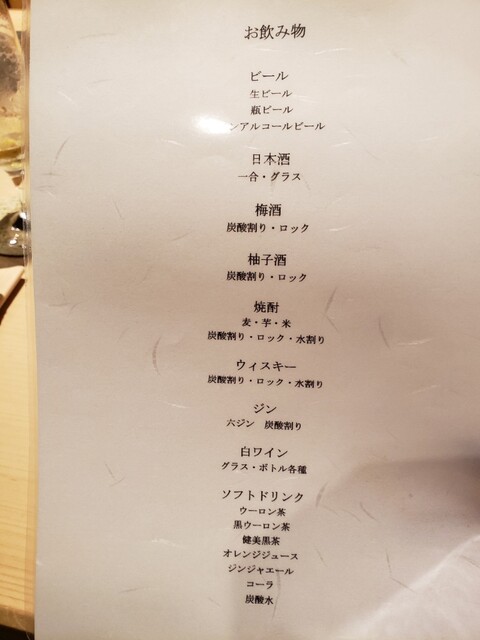 お飲み物
ビール
生ビール
瓶ビール
ンアルコールビール
日本酒
一合・グラス
梅酒
炭酸割り・ロック
柚子酒
炭酸割り・ロック
焼酎
麦・芋・米
炭酸割り・ロック・水割り
ウィスキー
炭酸割り・ロック・水割り
ジン
六ジン 炭酸割り
白ワイン
グラス・ボトル各種
ソフトドリンク
ウーロン茶
黒ウーロン茶
健美黒茶
オレンジジュース
ジンジャエール
コーラ
炭酸水